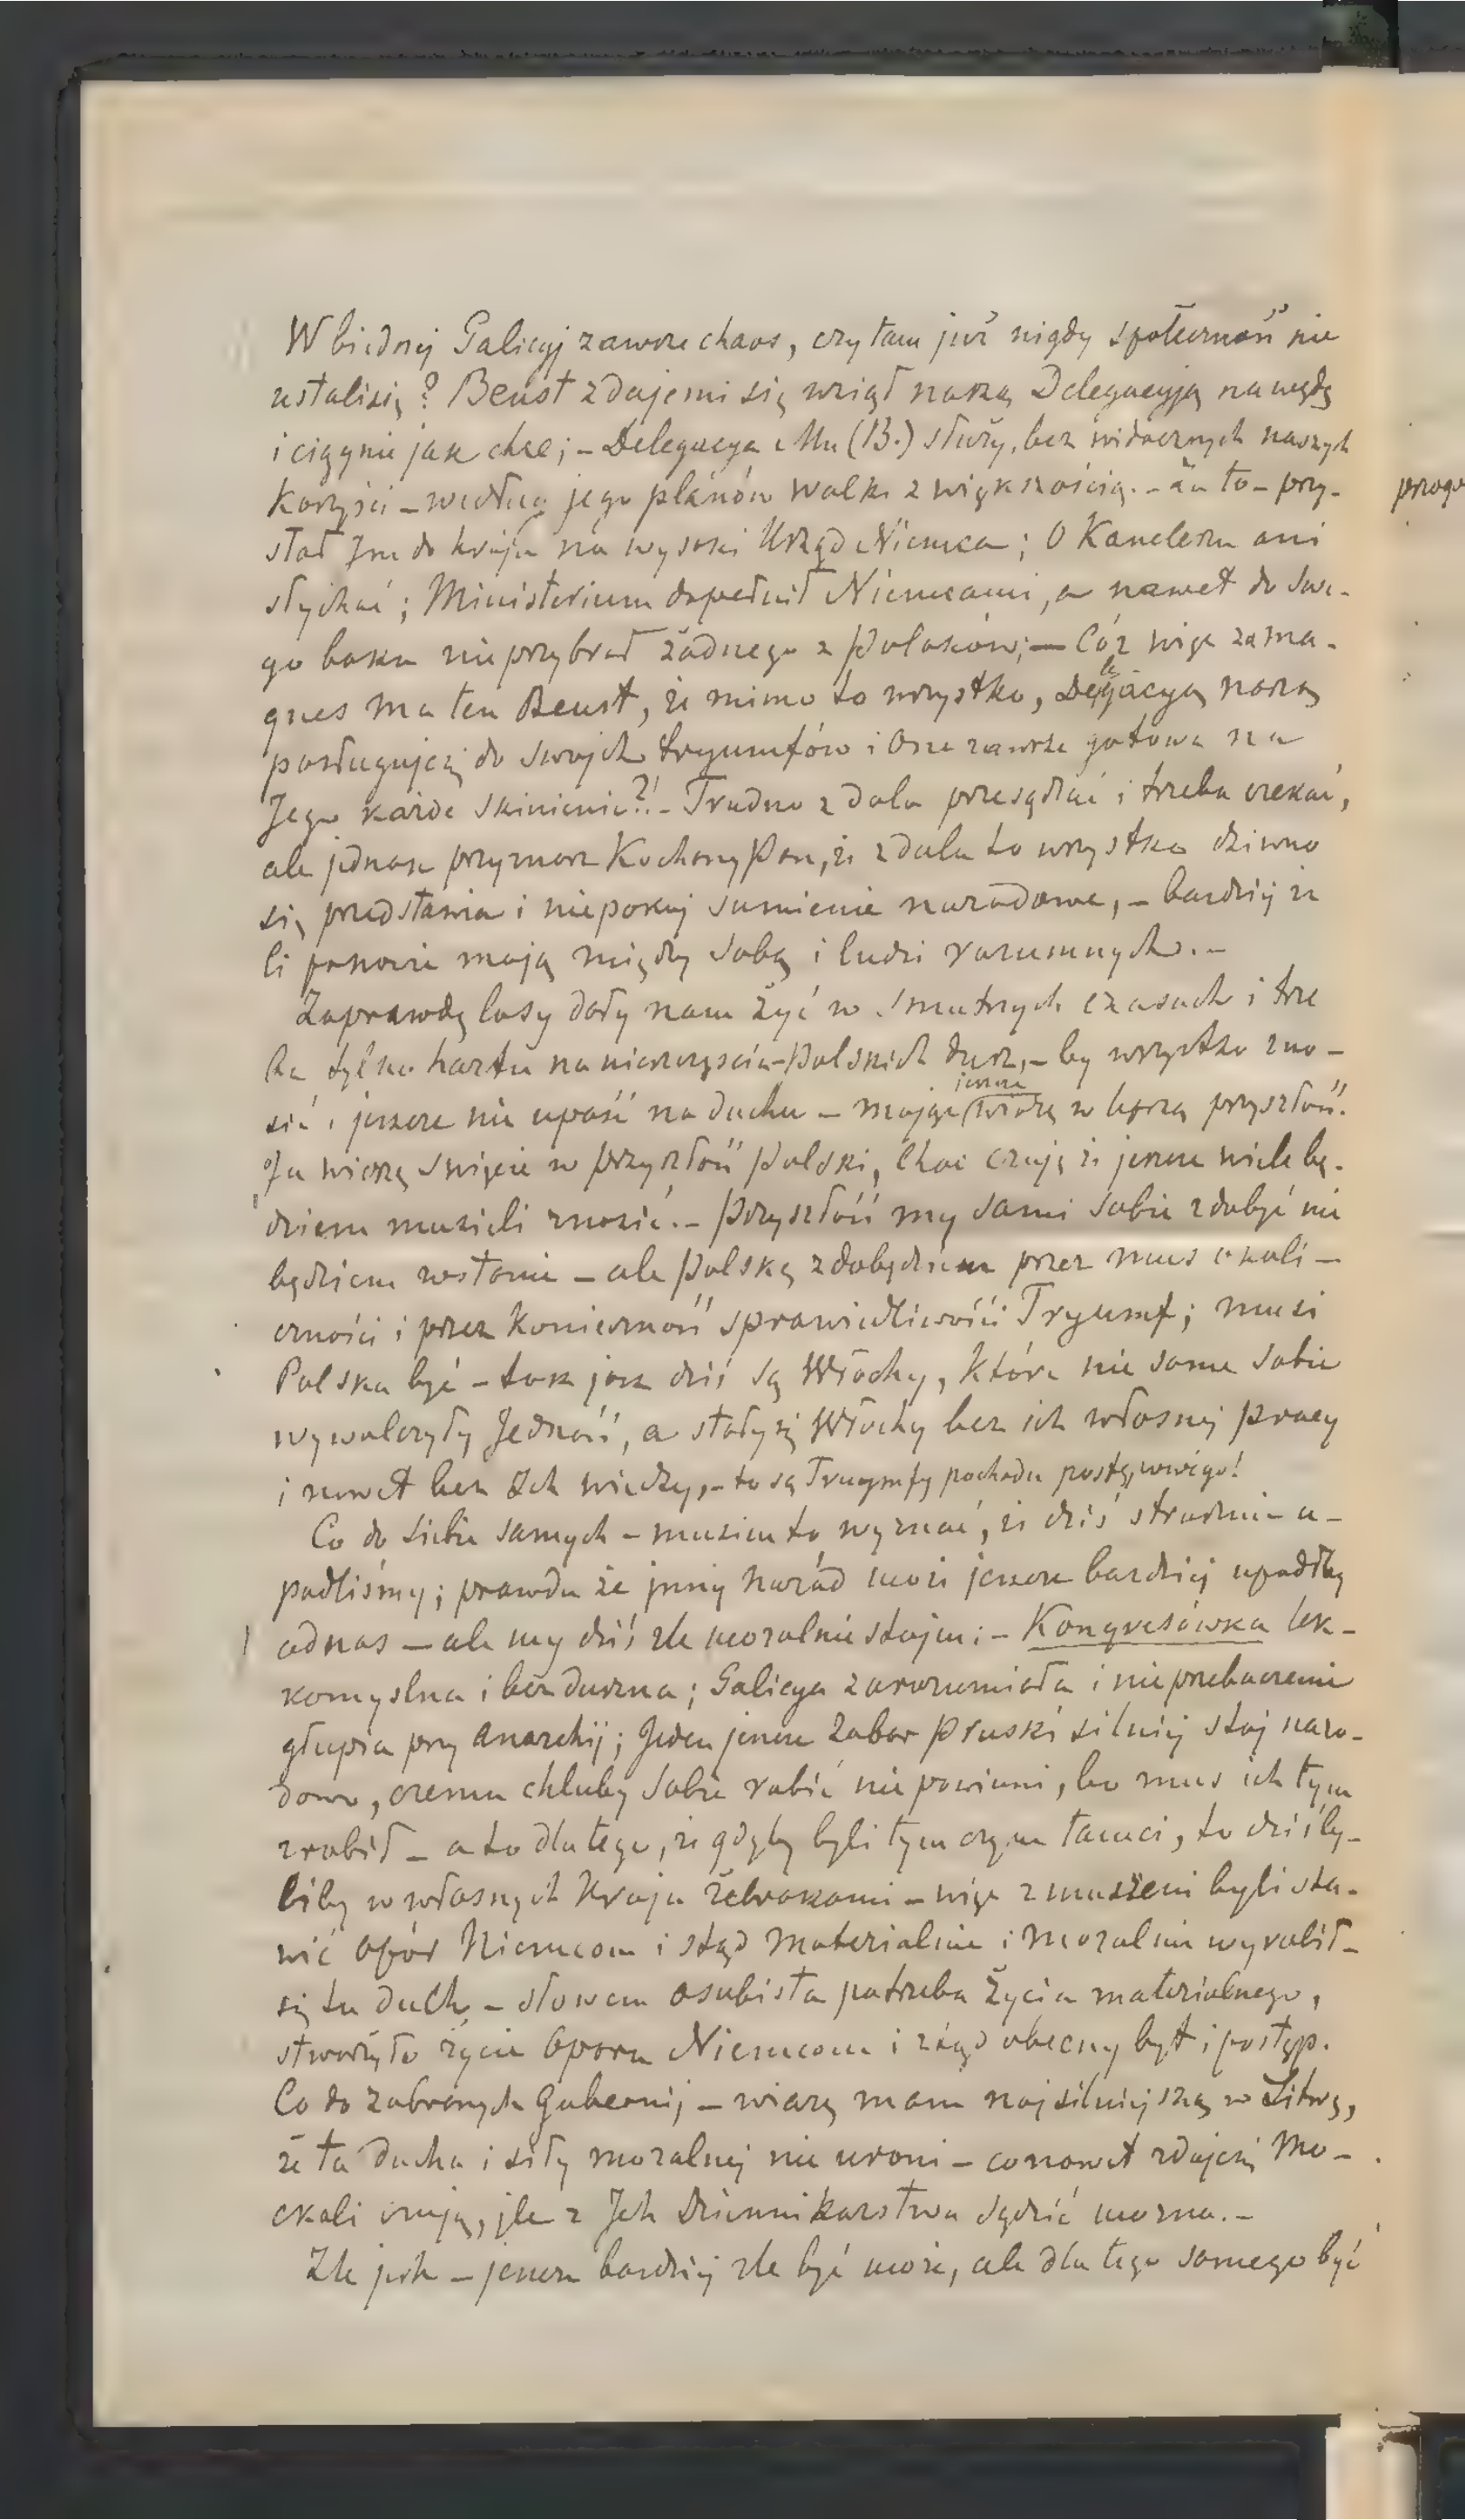 W biednej Galicyj zawsze chaos, czy tam już nigdy społeczność nie
ustali się? Beust zdaje mi się wziął naszą Delegacyją na wędę
i ciągnie jak chce; – Delegacya Mu (B.) służy, bez widocznych naszych
korzyści – według jego plánów walk z większością. – Za to – przy-
słał Jm do kraju na wysoki Urząd Niemca; O Kanclerzu ani
słychać; Ministerium dopełnił Niemcami, a nawet do swe-
go boku nie przybrał żadnego z Polaków; – Cóż więc za ma-
gnes ma ten Beust, że mimo to wszystko, Delegacyą naszą
posługuje się do swojch tryumfów i Ona zawsze gotowa na
Jego każde skinienie?! – Trudno z dala przesądzać i trzeba czekać,
ale jednak przyznasz Kochany Pan, że z dala to wszystko dziwno
się przedstawia i niepokoj sumienie narodowe, – bardziej że
ci panowie mają między sobą i ludzi rozumnych. –
Zaprawdę losy dały nam żyć w smutnych czasach i trze
ba tylko hartu na nieszczęścia – Polskich dusz, – by wszystko zno-
sić i jeszcze nie upaść na duchu – mając jeszcze wiarę w lepszą przyszłość.
Ja wierzę święcie w przyszłość Polski, choć czuję że jeszcze wiele bę-
dziem musieli znosić. – Przyszłość my sami sobie zdobyć nie
będziem w stanie – ale Polskę zdobędziem przez mus okoli-
czności i przez konieczność sprawiedliwości Tryumf; musi
Polska być – tak jak dziś są Włochy, które nie same sobie
wywalczyły Jedność, a stały się Włochy bez ich własnej pracy
i nawet bez Ich wiedzy, – to są Tryumfy pochodu postępowego!
Co do siebie samych – musim to wyznać, że dziś strasznie u-
padliśmy; prawda że jnny naród może jeszcze bardziej upadłby
od nas – ale my dziś źle moralnie stojem; – Kongresówka lek-
komyślna i bezduszna; Galicya zarozumiała i nieprzebaczenie
głupia przy Anarchij; Jeden jeszcze Zabor Pruski silniej stoj naro-
dowo, czemu chluby sobie robić nie powinni, bo mus ich tym
zrobił – a to dla tego, że gdyby byli tym czym tamci, to dziś by-
liby w własnych kraju żebrakami – więc zmuszeni byli sta-
wić opór Niemcom i stąd materialnie i moralnie wyrobił-
się tu duch, – słowem osobista potrzeba życia materialnego,
stworzyło życie oporu Niemcom i ztąd obecny byt i postęp.
Co do zabranych Gubernij – wiarę mam najsilniejszą w Litwę,
że ta ducha i siły moralnej nie uroni – co nawet zdaje się Mo-
skali czują, jle z Jch Dziennikarstwa sądzić można. –
Źle jest – jeszcze bardziej źle być może, ale dla tego samego być